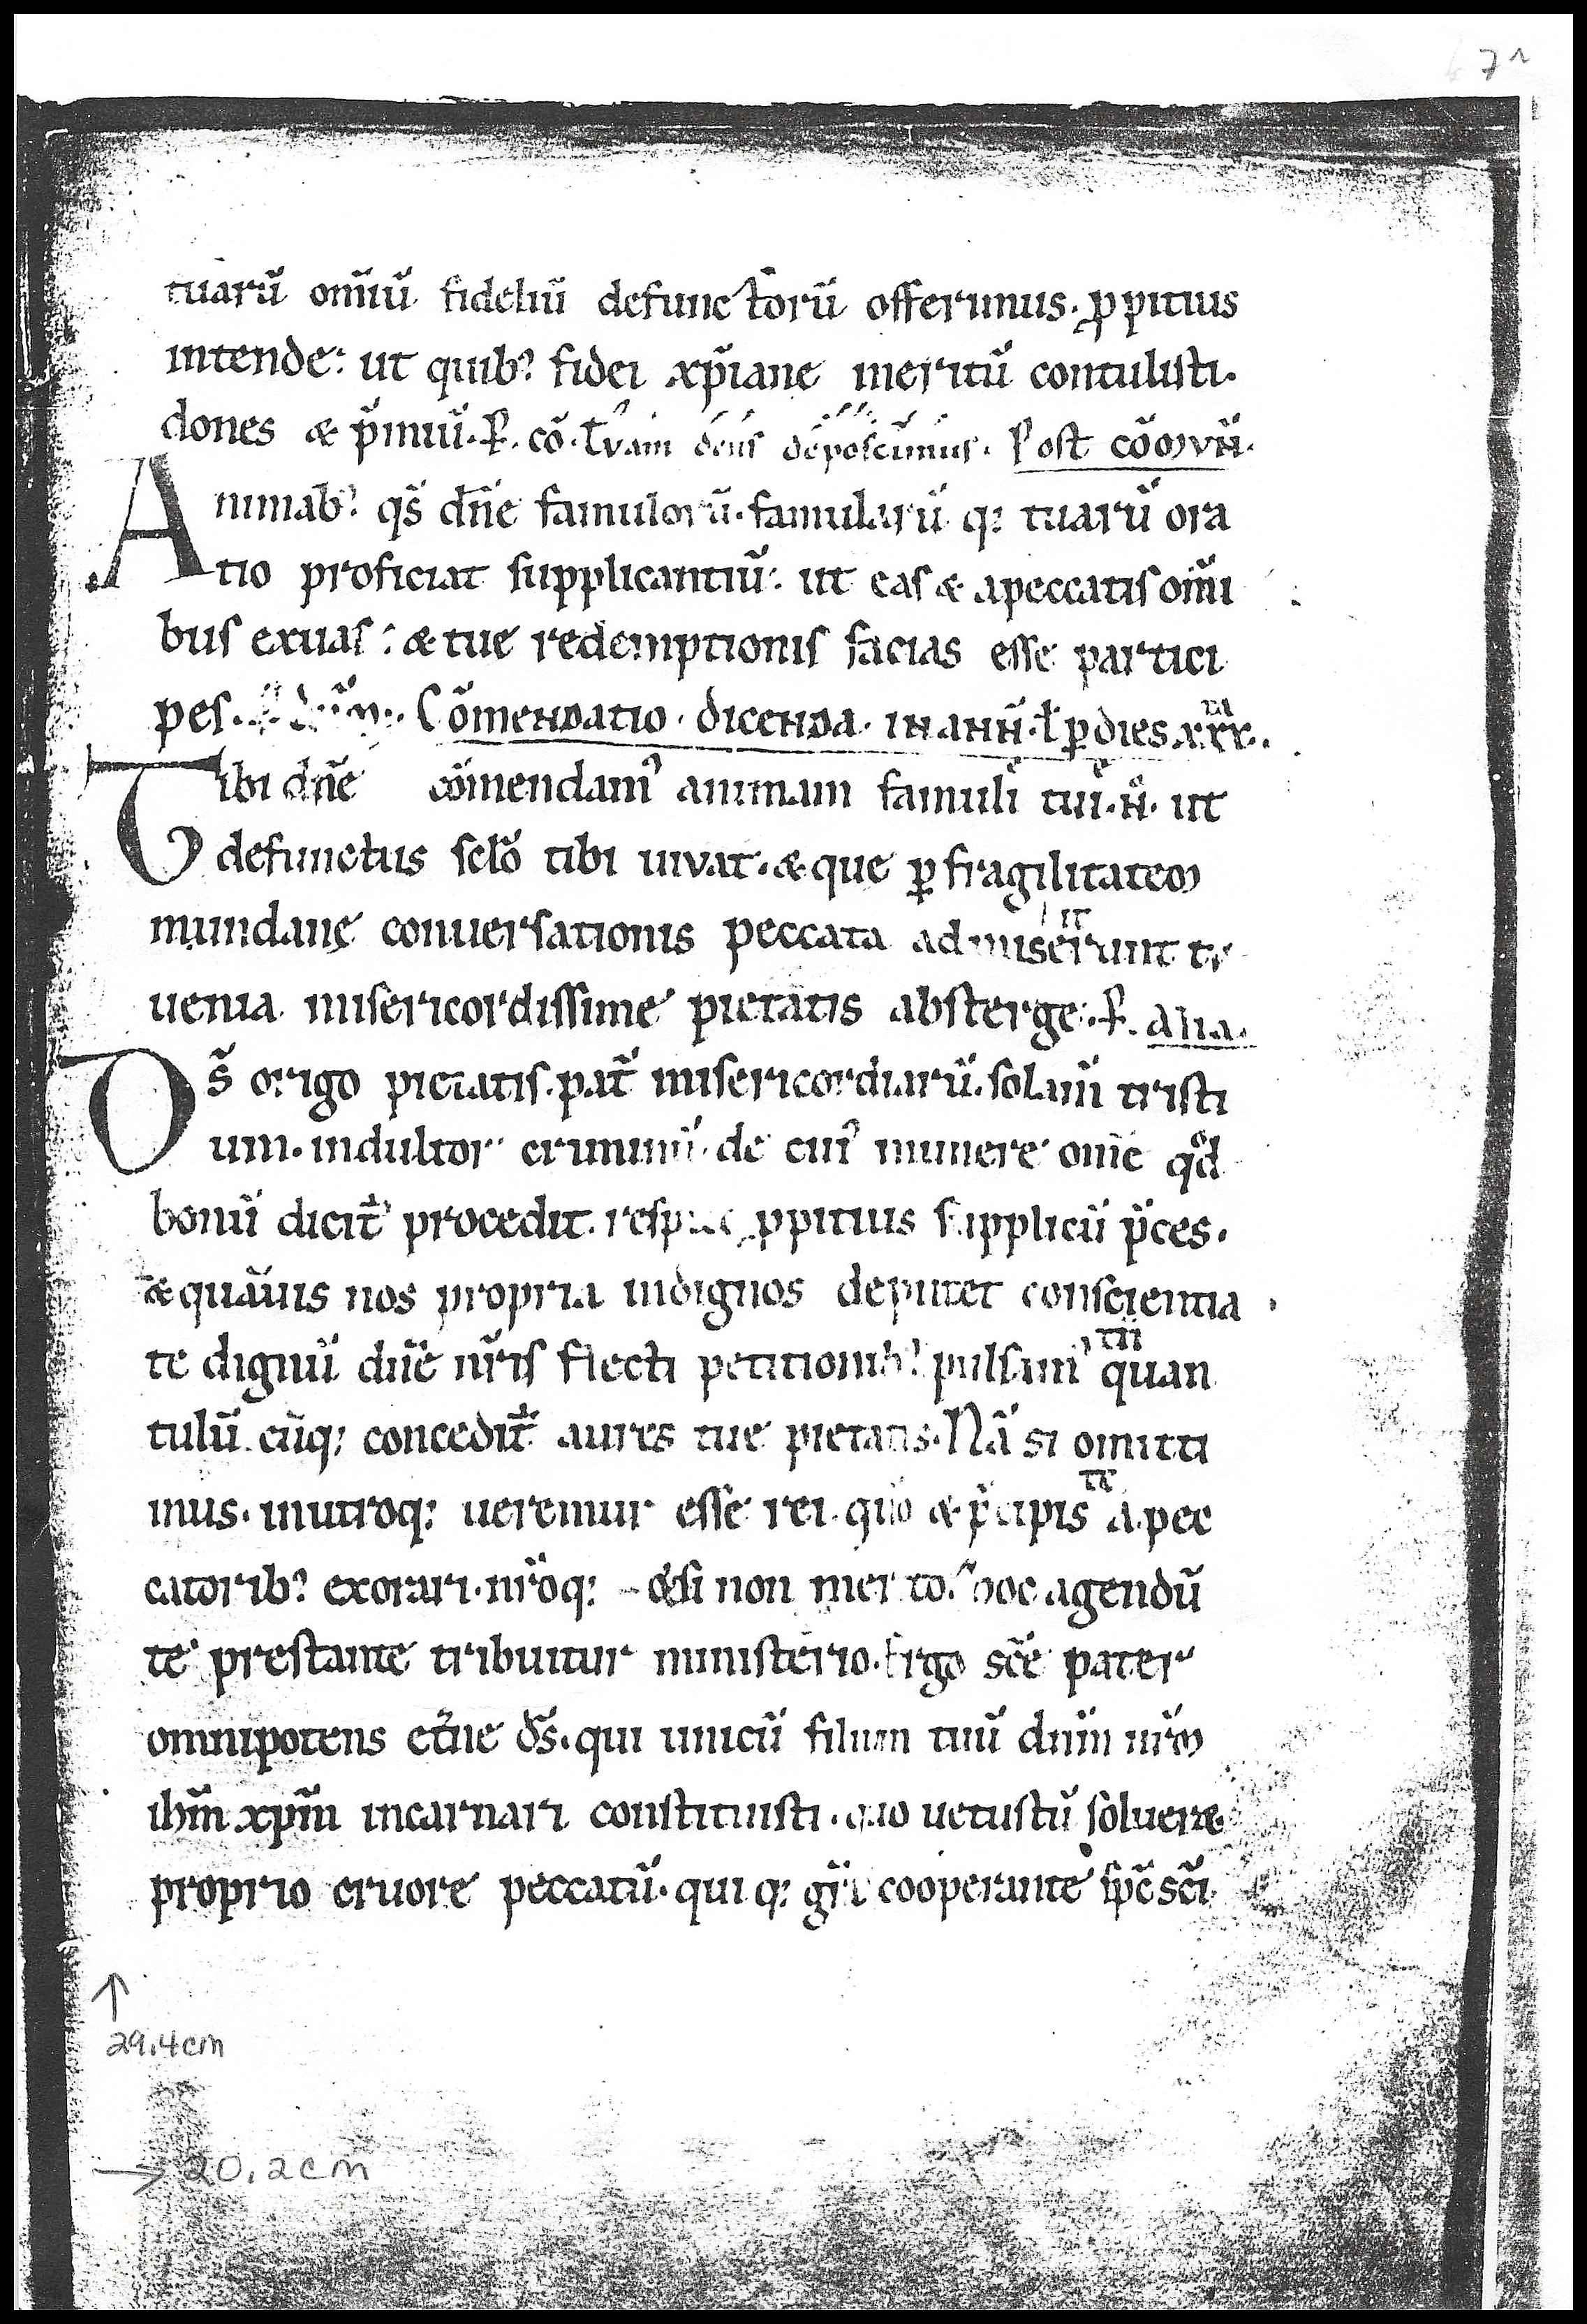 7r
tuarū om̄iū fideliū defunctorū offerimus. ꝓpitius
intende: ut quib; fidei xp̄iane meritū contulisti.
dones & p̄miū. P. cō. Tuam deus deposcimus. Post cōmun̄.
Animab; qs̄ dn̄e famulorū. famularū q; tuarū ora
tio proficiat supplicantiū: ut eas & apeccatis om̄i
bus exuas: & tue redemptionis facias esse partici
pes. Cōmendatio. dicenda. in ann̄. ł ꝑ dies xxx.
Tibi dn̄e cōmendam᾽ animam famuli tui. N̄. ut
defunctus sclo̅ tibi uivat. & que ꝑ fragilitatem
mundanę conuersationis peccata admiserunt tu
uenia misericordissime pietatis absterge. P. Alia.
Ds̄ origo pietatis. pat̄ misericordiarū. solam̄ tristi
um. indultor criminū. de cui᾽ munere om̄e qd̄
bonū dicit᷑ procedit. respice ꝓpitius supplicū p̄ces.
& quāuis nos propria indignos deputet conscientia
te dignū dn̄e nr̄is flecti petitionib; pulsam᾽ quan
tulū cūq; concedit᷑ aures tue pietatis. Nā si omitti
mus. inutroq; ueremur esse rei. quo & p̄cipis a pec
catorib; exorari. nr̄oq; & si non merito. hoc agendū
te prestante tribuitur ministerio. Ergo sc̄e pater
omnipotens et̄ne ds̄. qui unicū filium tuū dn̄m nr̄m
ihm̄ xpm̄ incarnari constituisti. quo uetustū soluere
proprio cruore peccatū. qui q; gr̄a cooperante sp̄c sc̄i
29.4cm
20.2cm